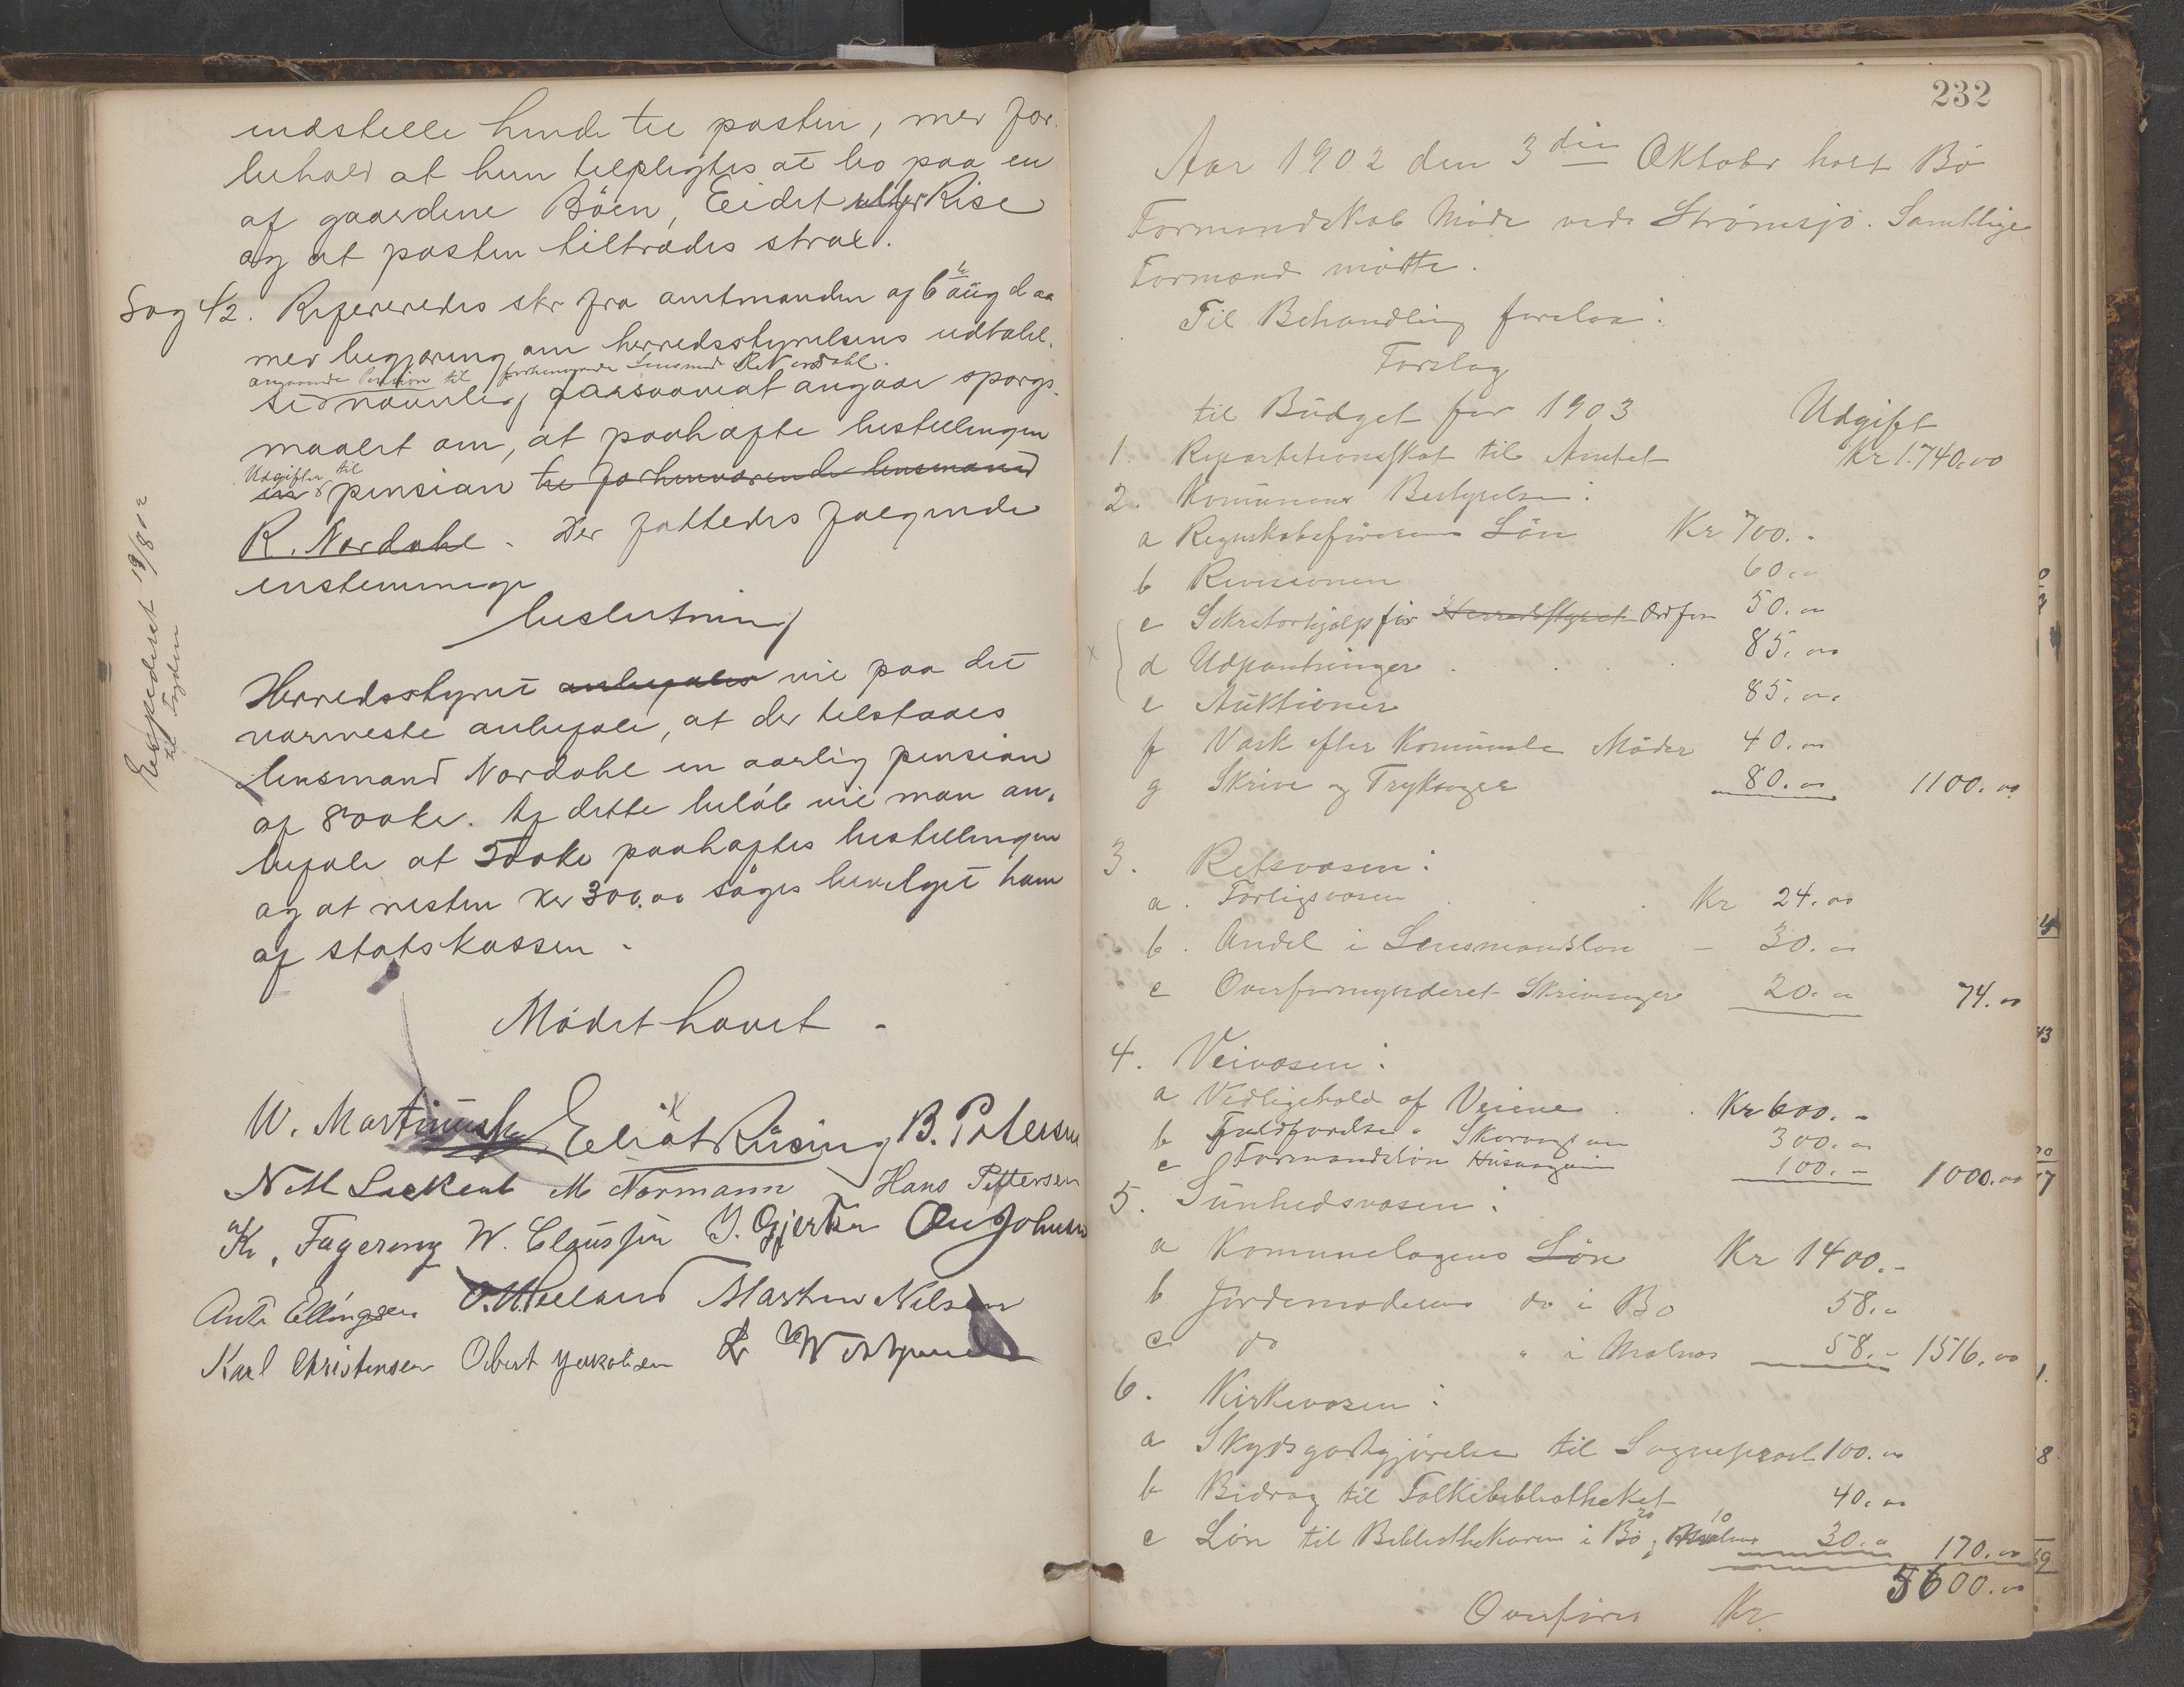 indstille hende til posten, med for-
behold at hun tilpligtes at bo paa en
af gaardene Böen, Eidet eller Rise
og at posten tiltrædes strax.
Sag 42. Refereredes skr fra amtmanden af 6te aug d aa
med begjæring om herredsstyrelsens udtalel-
angaaende Pension til forhenværende Lensmand R. Nordahl.
se navnlig forsaavidt angaar spörgs-
maalet om, at paahæfte bestillingen
Udgifter til
en pension til forhenværende lensmand
R. Nordahl. Der fattedes fölgende
enstemmige
beslutning
Herredsstyret anbefaler vil paa det
varmeste anbefale, at der tilstaaes
lensmand Nordahl en aarlig pension
af 800 kr. Af dette belöb vil man an-
befale at 500 kr paahæftes bestillingen
og at resten kr 300,00 söges bevilget ham
af statskassen.
Expederet 19/8 02
til Fogden
Mödet hævet.
W. Martinussen Eliot Rüsing B. Petersen
M Normann Hans Pettersen
Kr. Fagereng W. Claussen J. Gjertsen Ole Johnsen
Ant. Ellingsen Martin Nilsen
Karl Christensen Obert Jakobsen
232
Aar 1902 den 3die Oktober holdt Bö
Formandskab Möde ved Strömsjö. Samtlige
Formænd mödte.
Til Behandling forelaa:
Forslag
til Budget for 1903 Udgift
1. Repartitionsskat til Amtet Kr 1.740.00
2. Komunens Bestyrelse:
a Regnskabsförerens Lön Kr 700.-
b Revisionen 60.00
c Sekretærhjælp for Herredsstyret Ordför 50.00
d Udpantninger 85.00
e Auktioner 85.00
f Vask efter Komunale Möder 40.00
g Skrive og Tryksager 80.00 1100.00
3. Retsvæsen:
a. Forligsvæsen Kr 24.00
b. Andel i Lensmandslön - 30.00
c Overformynderiet Skrivesager 20.00 74.00
4. Veivæsen:
a Vedligehold af Veiene Kr 600.-
b Fuldförelse Skorvogveien 300.00
c Formandslön Husvogveien 100.- 1000.00
5. Sundhedsvæsen:
a Komunelægens Lön Kr 1400.-
b Jordemoderens do i Bö 58.00
c do " i Malnes 58.- 1516.00
6. Kirkevæsen:
a Skydsgodtgjörelse til Sognepræst 100.00
b Bidrag til Folkebibliotheket 40.00
c Lön til Bibliothekaren i Bö 20, Malnes 10 30.00 170.00
Overföres Kr. 5600.00